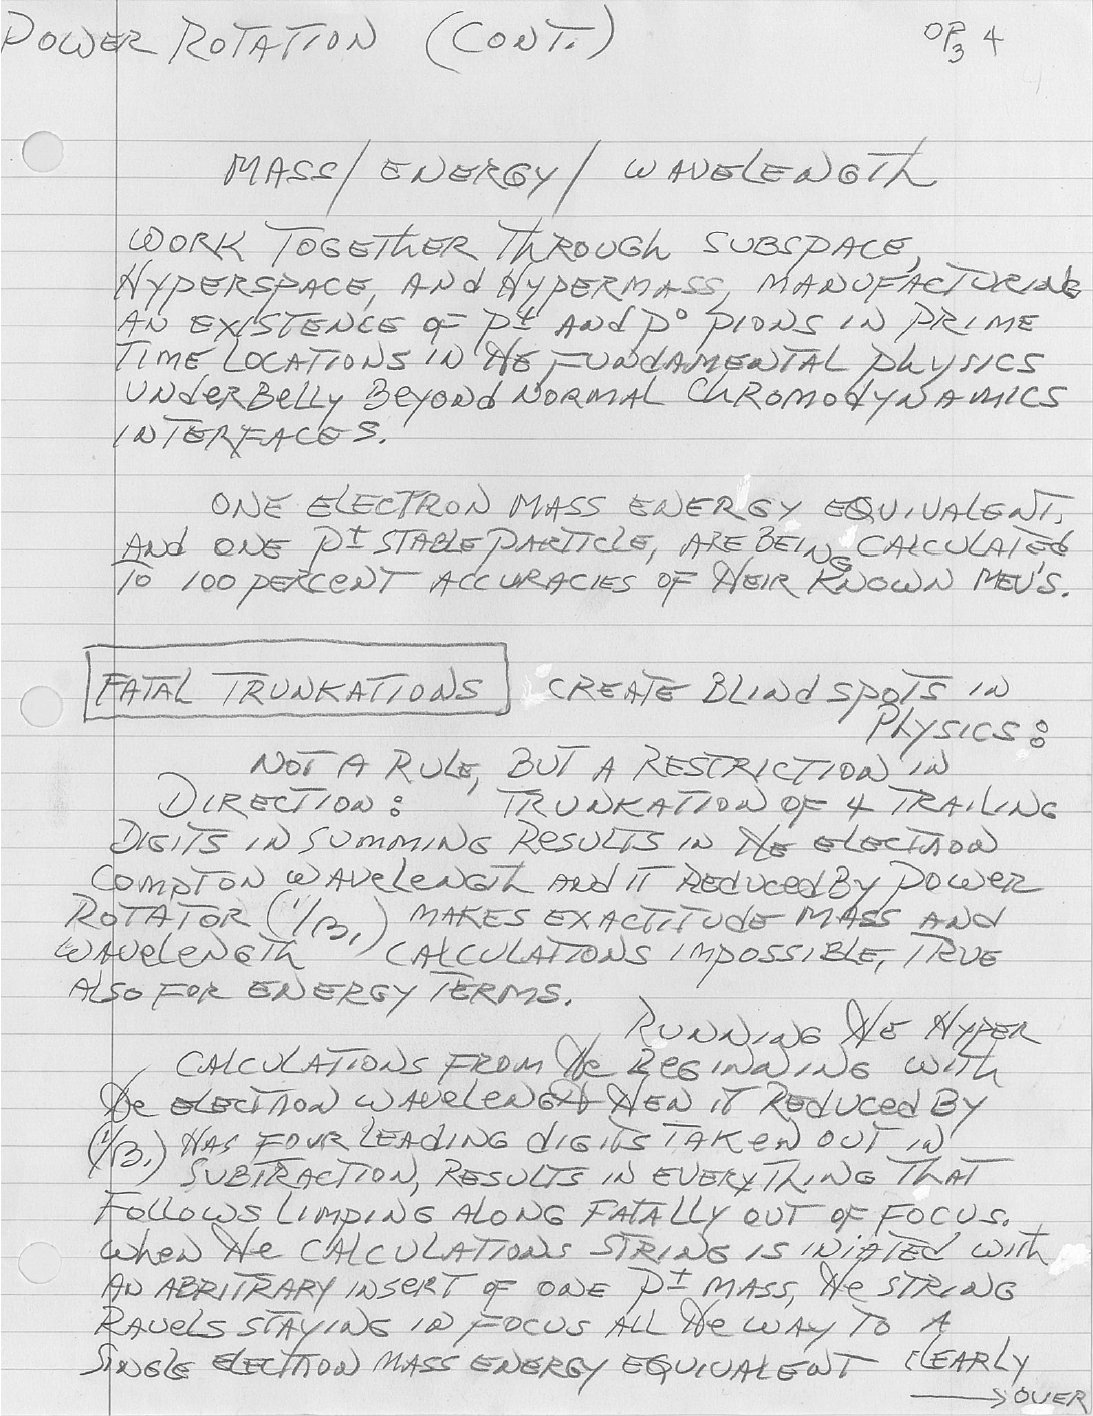 POWER ROTATION (CONT.)
OP3 4
MASS/ENERGY/WAVELENGTH
WORK TOGETHER THROUGH SUBSPACE,
HYPERSPACE, AND HYPERMASS, MANUFACTURING
AN EXISTENCE OF P± AND P° PIONS IN PRIME
TIME LOCATIONS IN THE FUNDAMENTAL PHYSICS
UNDERBELLY BEYOND NORMAL CHROMODYNAMICS
INTERFACES.
ONE ELECTRON MASS ENERGY EQUIVALENT,
AND ONE P± STABLE PARTICLE, ARE BEING CALCULATED
TO 100 PERCENT ACCURACIES OF THEIR KNOWN MEV'S.
FATAL TRUNKATIONS CREATE BLIND SPOTS IN
PHYSICS:
NOT A RULE, BUT A RESTRICTION IN
DIRECTION: TRUNKATION OF 4 TRAILING
DIGITS IN SUMMING RESULTS IN THE ELECTRON
COMPTON WAVELENGTH AND IT REDUCED BY POWER
ROTATOR (1/B1) MAKES EXACTITUDE MASS AND
WAVELENGTH CALCULATIONS IMPOSSIBLE, TRUE
ALSO FOR ENERGY TERMS.
RUNNING THE HYPER
CALCULATIONS FROM THE BEGINNING WITH
THE ELECTRON WAVELENGTH THEN IT REDUCED BY
(1/B1) HAS FOUR LEADING DIGITS TAKEN OUT IN
SUBTRACTION, RESULTS IN EVERYTHING THAT
FOLLOWS LIMPING ALONG FATALLY OUT OF FOCUS.
WHEN THE CALCULATIONS STRING IS INIATED WITH
AN ABRITRARY INSERT OF ONE P± MASS, THE STRING
RAVELS STAYING IN FOCUS ALL THE WAY TO A
SINGLE ELECTRON MASS ENERGY EQUIVALENT CLEARLY
→ OVER